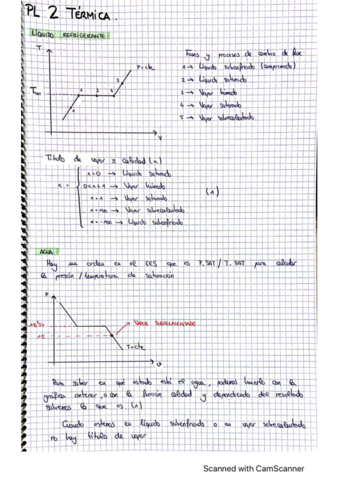 PL 2 TÉRMICA.
LÍQUIDO REFRIGERANTE
T
P=cte
Tsat
1
2
3
4
5
v
Fases y procesos de cambio de fase
1 → Líquido subenfriado (comprimido)
2 → Líquido saturado
3 → Vapor húmedo
4 → Vapor saturado
5 → Vapor sobrecalentado
Título de vapor = calidad (x)
x =
x=0 → Líquido saturado
0<x<1 → Vapor húmedo
x=1 → Vapor saturado
→ Vapor sobrecalentado
x=-100 → Líquido subenfriado
(1)
AGUA
Hay una orden en el EES que es P_SAT / T_SAT para calcular
la presión / temperatura de saturación
P
VAPOR SOBRECALENTADO
T=cte
v
Para saber en qué estado está el agua, podemos hacerlo con la
gráfica anterior, o con la función calidad y dependiendo del resultado
sabremos lo que es (1)
Cuando estemos en líquido subenfriado o en vapor sobrecalentado
no hay título de vapor
Scanned with CamScanner